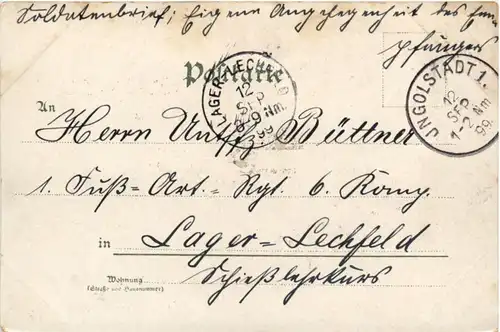 Soldatenbrief; Eigene Angelegenheit des Em-
pfängers
Postkarte
LAGER-LECHFELD
12
SEP
8-9 Nm.
99
JNGOLSTADT 1.
12
SEP
1-2 Nm
99.
An
Herrn Untffz. Büttner
1. Fuß-Art.- Rgt. 6. Komp.
in Lager-Lechfeld
Schießlehrkurs
Wohnung
(Straße und Hausnummer)